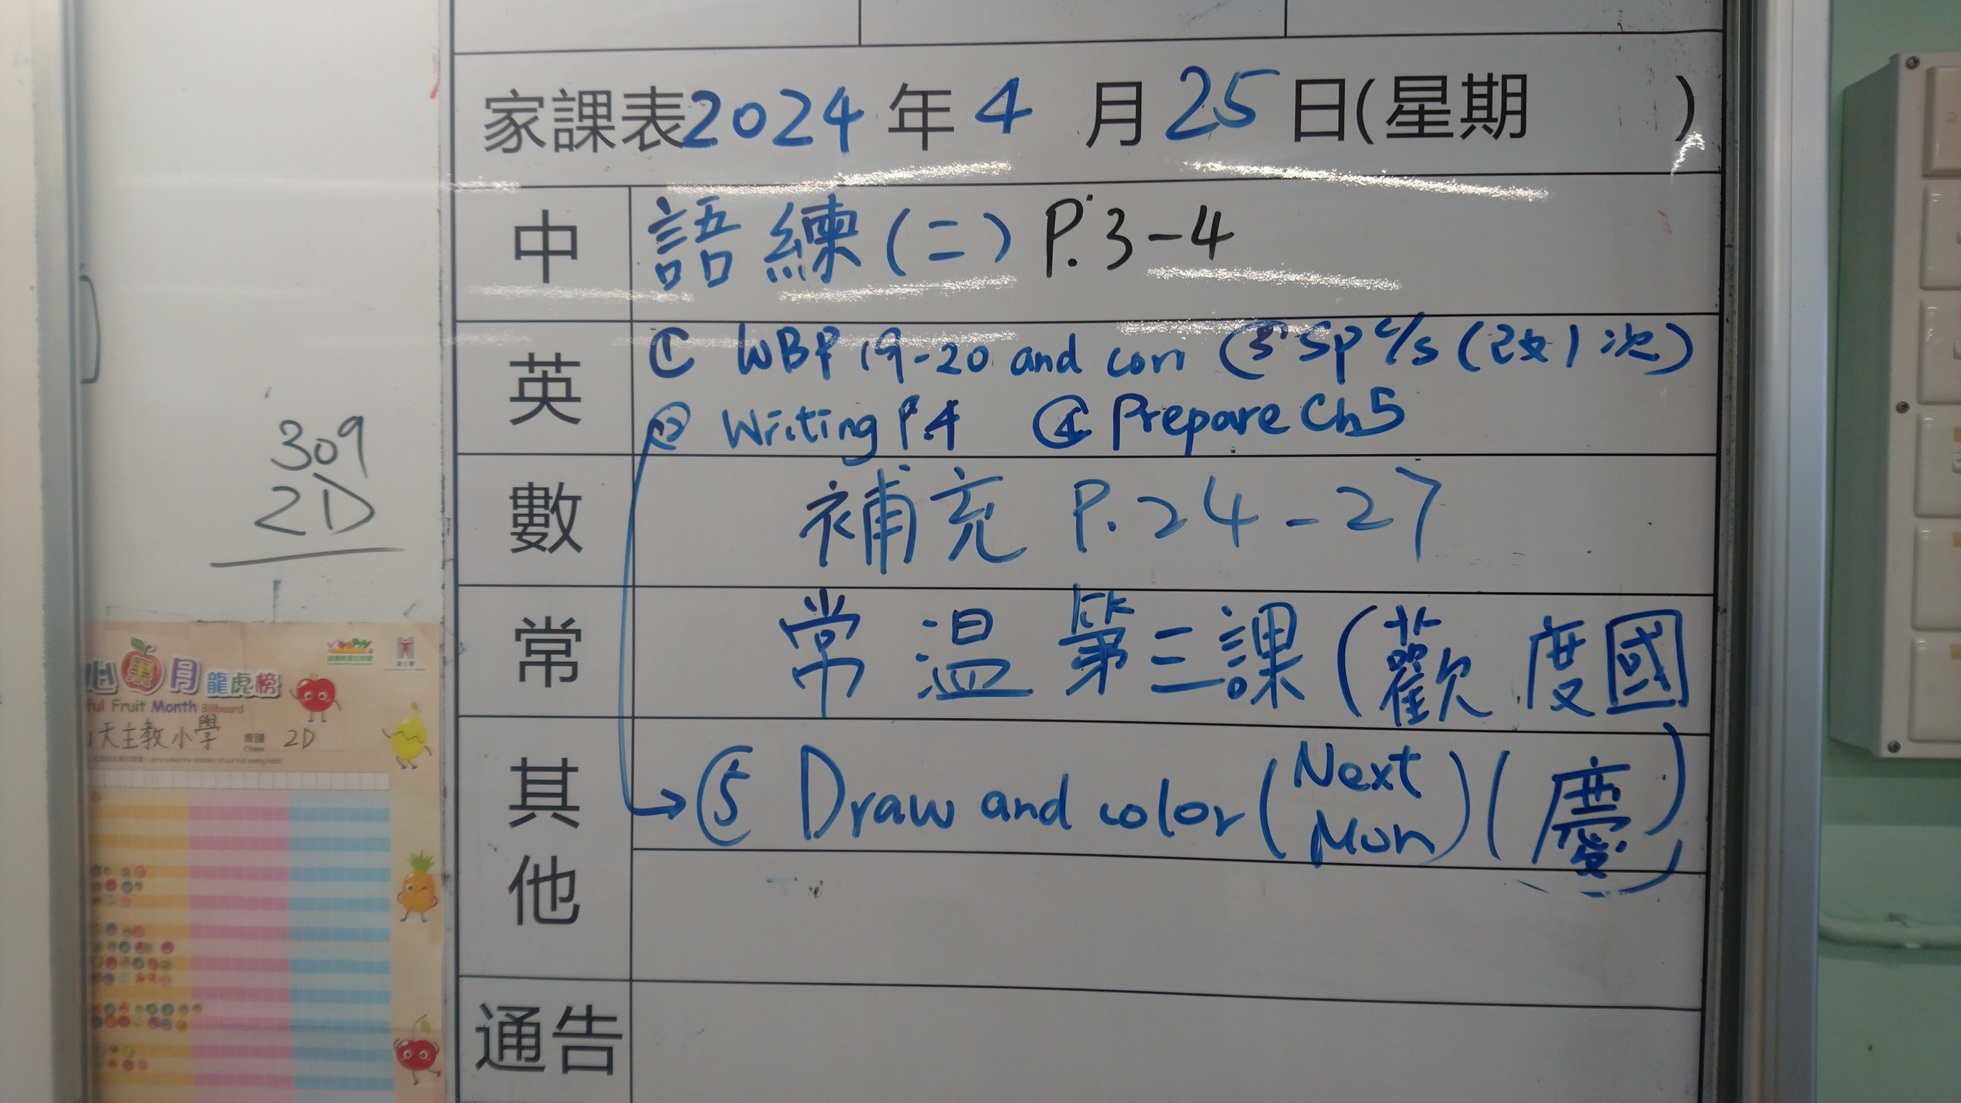 家課表2024年4月25日(星期 )
中 語練(二) P.3-4
英 ① WBP 19-20 and corr ③ Sp c/s (改1次)
② Writing P.4 ④ Prepare Ch5
數 補充 P.24-27
常 常温第三課(歡度國
其他 ⑤ Draw and color (Next Mon) (慶)
通告
309
2D
心果月龍虎榜
ful Fruit Month Billboard
天主教小學 班別 Class 2D